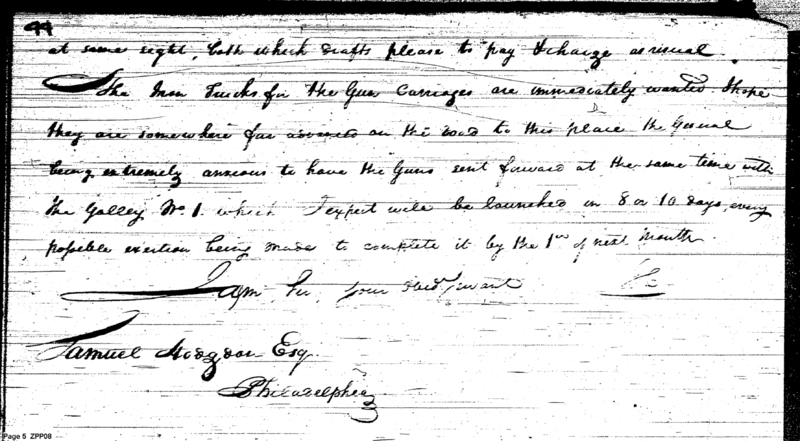 44
at same sight, both which drafts please to pay & charge as usual.
The Iron Trucks for the Gun Carriages are immediately wanted I hope
they are somewhere far advanced on the road to this place the General
being extremely anxious to have the Guns sent forward at the same time with
the Galley No 1. which I expect will be launched in 8 or 10 days, every
possible exertion being made to complete it by the 1st of next month.
I am, Sir, your Obedt Servant
Samuel Hodgdon Esq
Philadelphia
Page 5 ZPP08